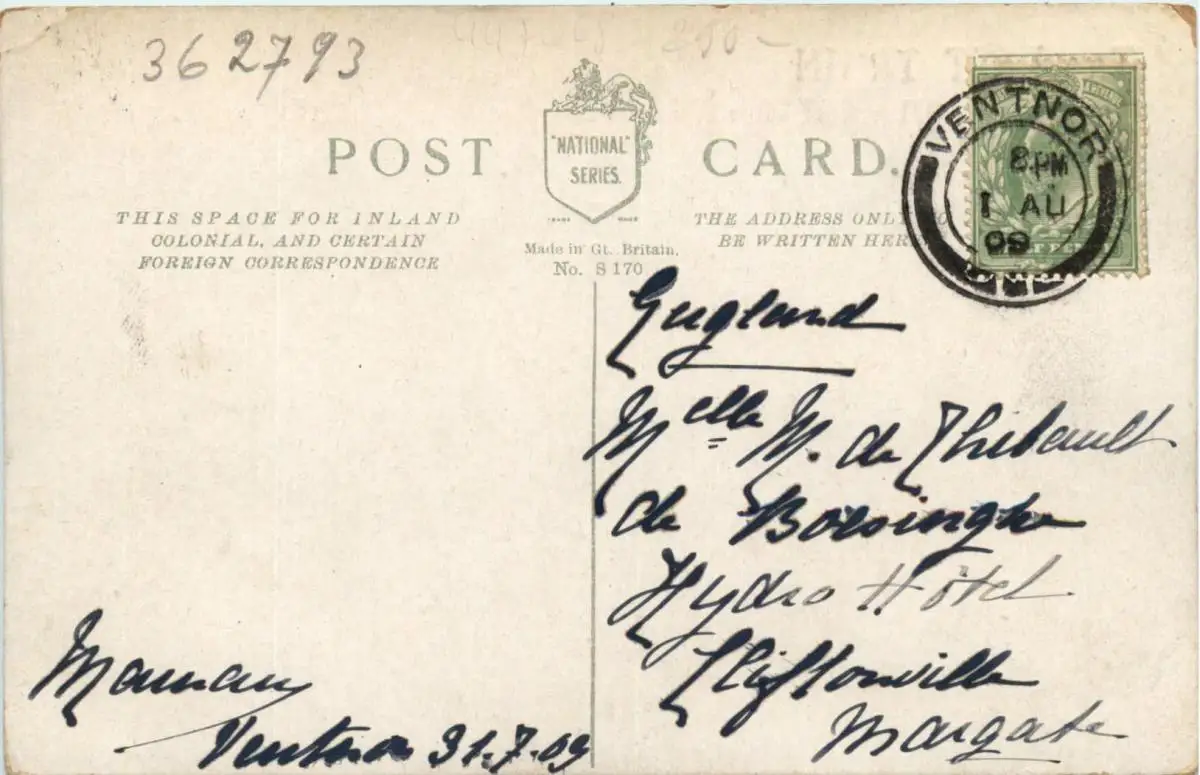 362793
POST CARD.
"NATIONAL"
SERIES.
THIS SPACE FOR INLAND
COLONIAL, AND CERTAIN
FOREIGN CORRESPONDENCE
TRADE MARK
Made in Gt. Britain.
No. S 170
THE ADDRESS ONLY TO
BE WRITTEN HERE
VENTNOR
8 PM
1 AU
09
England
Melle M. de Thibault
de Boesinghe
Hydro Hôtel
Cliftonville
Margate
Maman
Ventnor 31.7.09